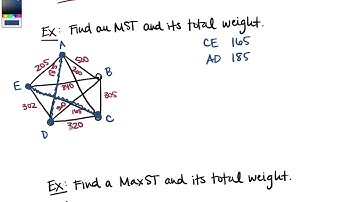 Ex: Find an MST and its total weight.
CE 165
AD 185
A
B
C
D
E
205
185
200
340
305
302
165
320
Ex: Find a MaxST and its total weight.